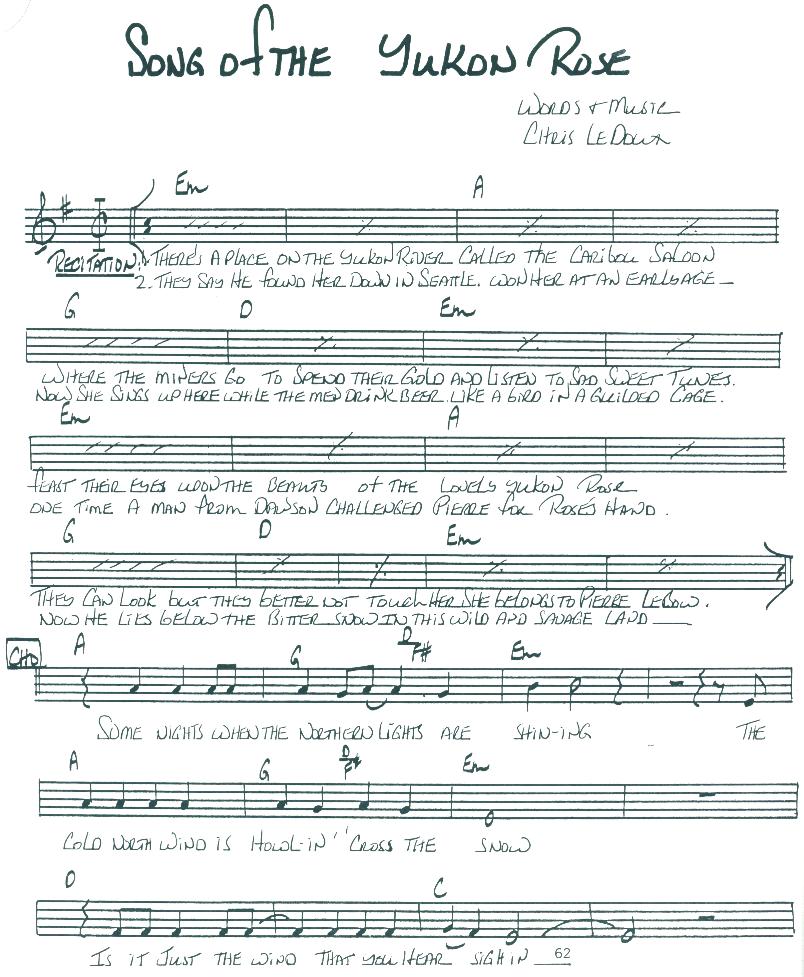 SONG OF THE YUKON ROSE
WORDS & MUSIC
CHRIS LEDOUX
Em A
RECITATION: 1. THERE'S A PLACE ON THE YUKON RIVER CALLED THE CARIBOU SALOON
2. THEY SAY HE FOUND HER DOWN IN SEATTLE. WON HER AT AN EARLY AGE
G D Em
WHERE THE MINERS GO TO SPEND THEIR GOLD AND LISTEN TO SAD SWEET TUNES.
NOW SHE SINGS UP HERE WHILE THE MEN DRINK BEER LIKE A BIRD IN A GUILDED CAGE.
Em A
FEAST THEIR EYES UPON THE BEAUTY OF THE LOVELY YUKON ROSE
ONE TIME A MAN FROM DAWSON CHALLENGED PIERRE FOR ROSE'S HAND.
G D Em
THEY CAN LOOK BUT THEY BETTER NOT TOUCH HER SHE BELONGS TO PIERRE LEBOW.
NOW HE LIES BELOW THE BITTER SNOW IN THIS WILD AND SAVAGE LAND
CHO A G D/F# Em
SOME NIGHTS WHEN THE NORTHERN LIGHTS ARE SHIN-ING THE
A G D/F# Em
COLD NORTH WIND IS HOWL-IN' 'CROSS THE SNOW
D C
IS IT JUST THE WIND THAT YOU HEAR SIGHIN
62